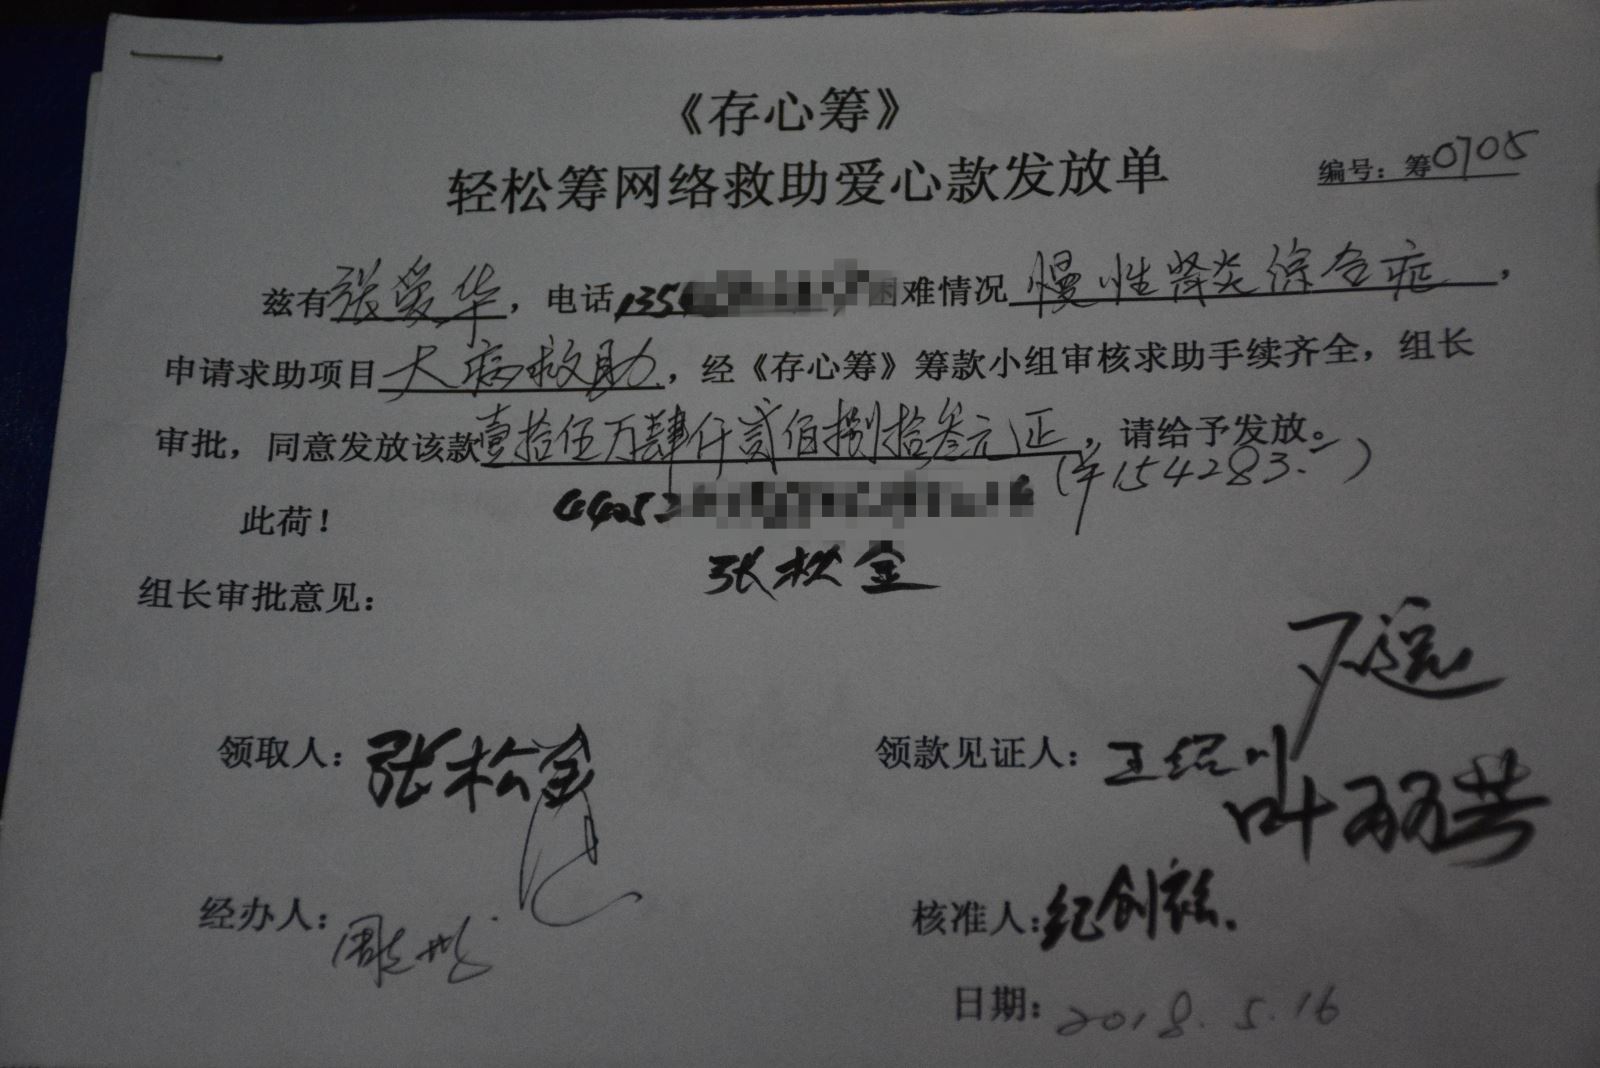 《存心筹》
轻松筹网络救助爱心款发放单
编号：筹0705
兹有张爱华，电话135 困难情况慢性肾炎综合症，
申请求助项目大病救助，经《存心筹》筹款小组审核求助手续齐全，组长
审批，同意发放该款壹拾伍万肆仟贰佰捌拾叁元正，请给予发放。
(¥154283.-)
此荷！
44052
张松金
组长审批意见：
领取人：张松金
领款见证人：王绍川
叶
经办人：周
核准人：纪创
日期：2018.5.16